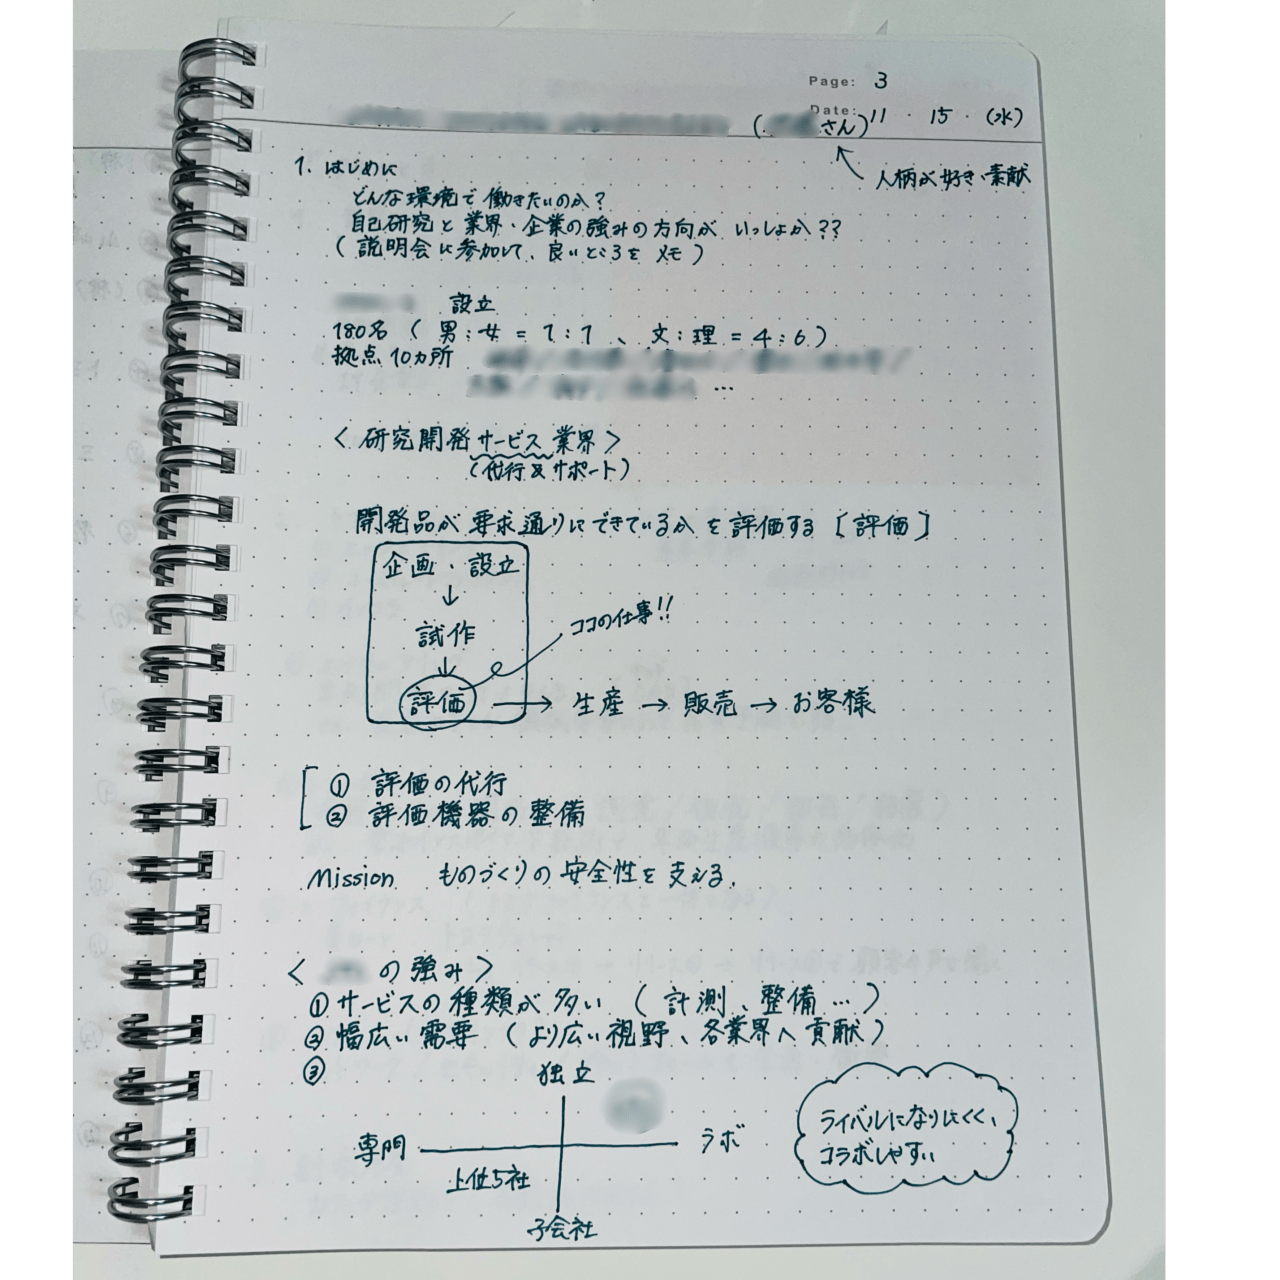 Page: 3
Date: 11 ・ 15 ・ (水)
( さん)
人柄が好き・素敵
1. はじめに
どんな環境で働きたいのか?
自己研究と業界・企業の強みの方向がいっしょか??
(説明会に参加して、良いところをメモ)
設立
180名 (男:女 = 1:1 、文:理 = 4:6)
拠点10ヵ所
…
<研究開発サービス業界>
(代行&サポート)
開発品が要求通りにできているかを評価する [評価]
企画・設立
↓
試作
ココの仕事!!
↓
評価 → 生産 → 販売 → お客様
① 評価の代行
② 評価機器の整備
Mission ものづくりの安全性を支える.
< の強み>
① サービスの種類が多い (計測、整備…)
② 幅広い需要 (より広い視野、各業界へ貢献)
③
独立
専門
ラボ
上位5社
子会社
ライバルになりにくく、
コラボしやすい